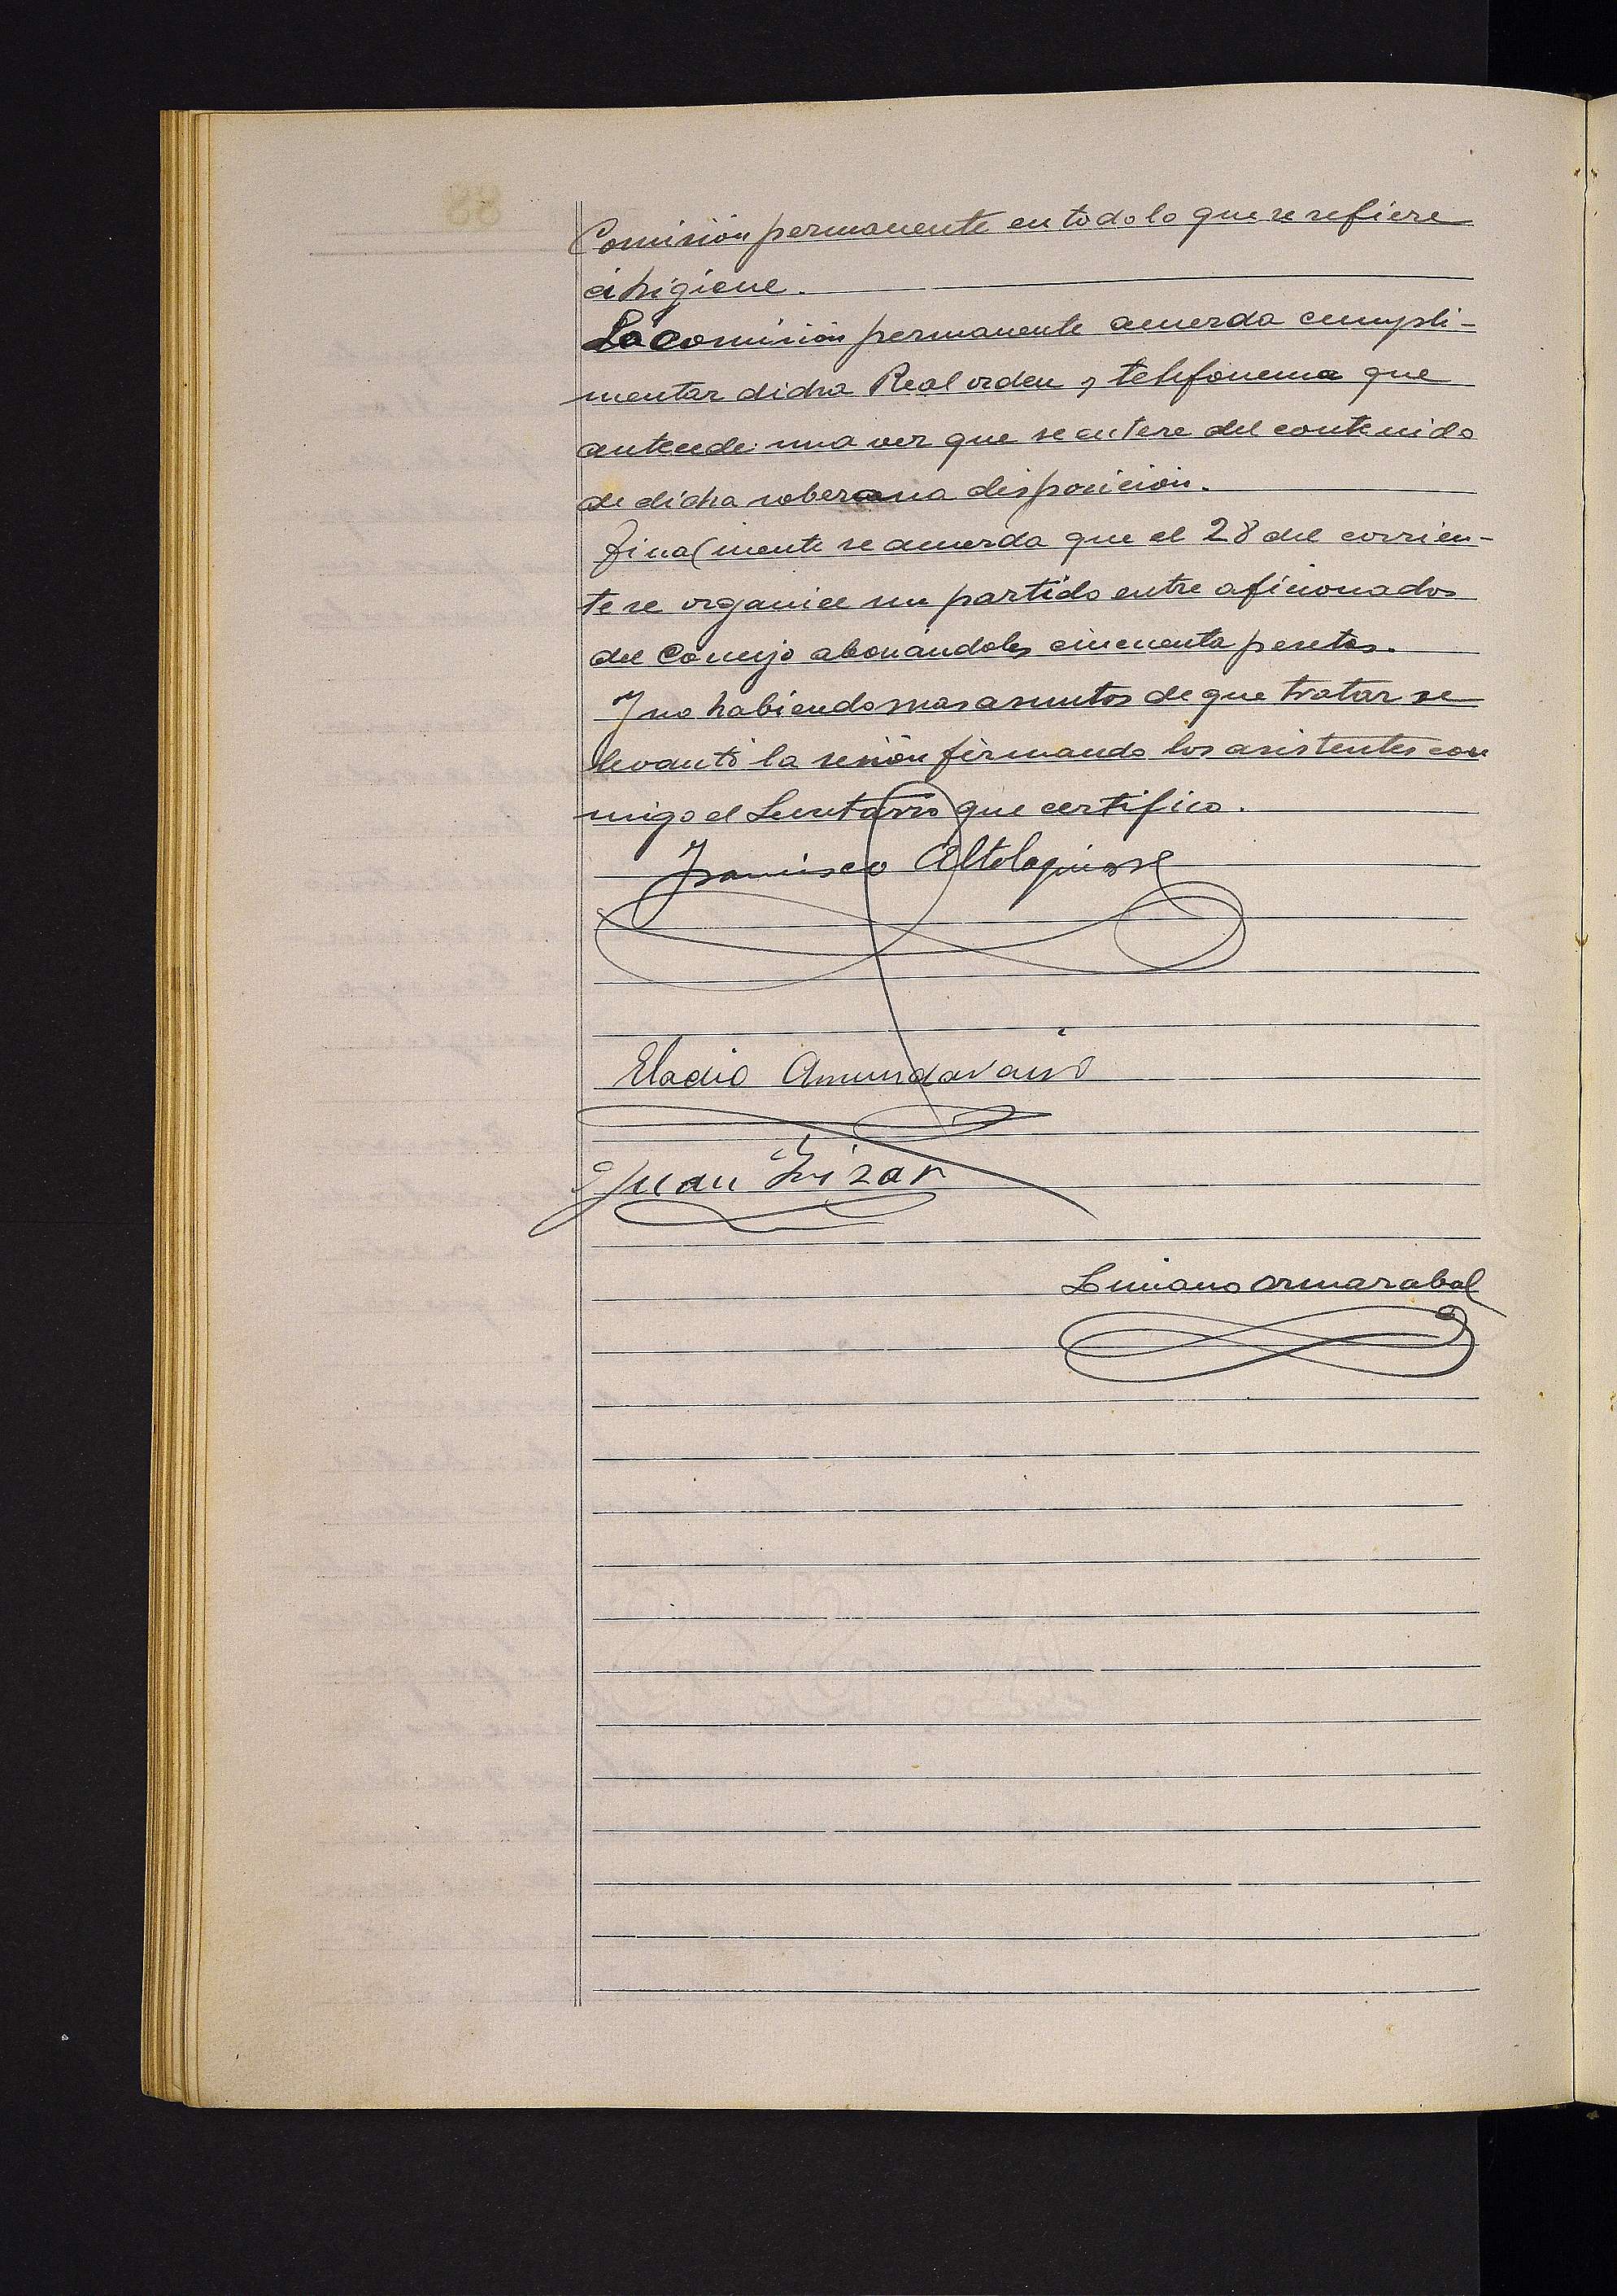 Comisión permanente en todo lo que se refiere
á higiene.
La comisión permanente acuerda cumpli-
mentar dicha Real orden y telefonema que
antecede una vez que se entere del contenido
de dicha soberana disposición.
Finalmente se acuerda que el 28 del corrien-
te se organice un partido entre aficionados
del Concejo abonándoles cincuenta pesetas.
Y no habiendo mas asuntos de que tratar se
levantó la sesión firmando los asistentes con
migo el Secretario que certifico.
Francisco Altolaguirre
Eladio Amundarain
Juan Irizar
Luciano Ormazabal